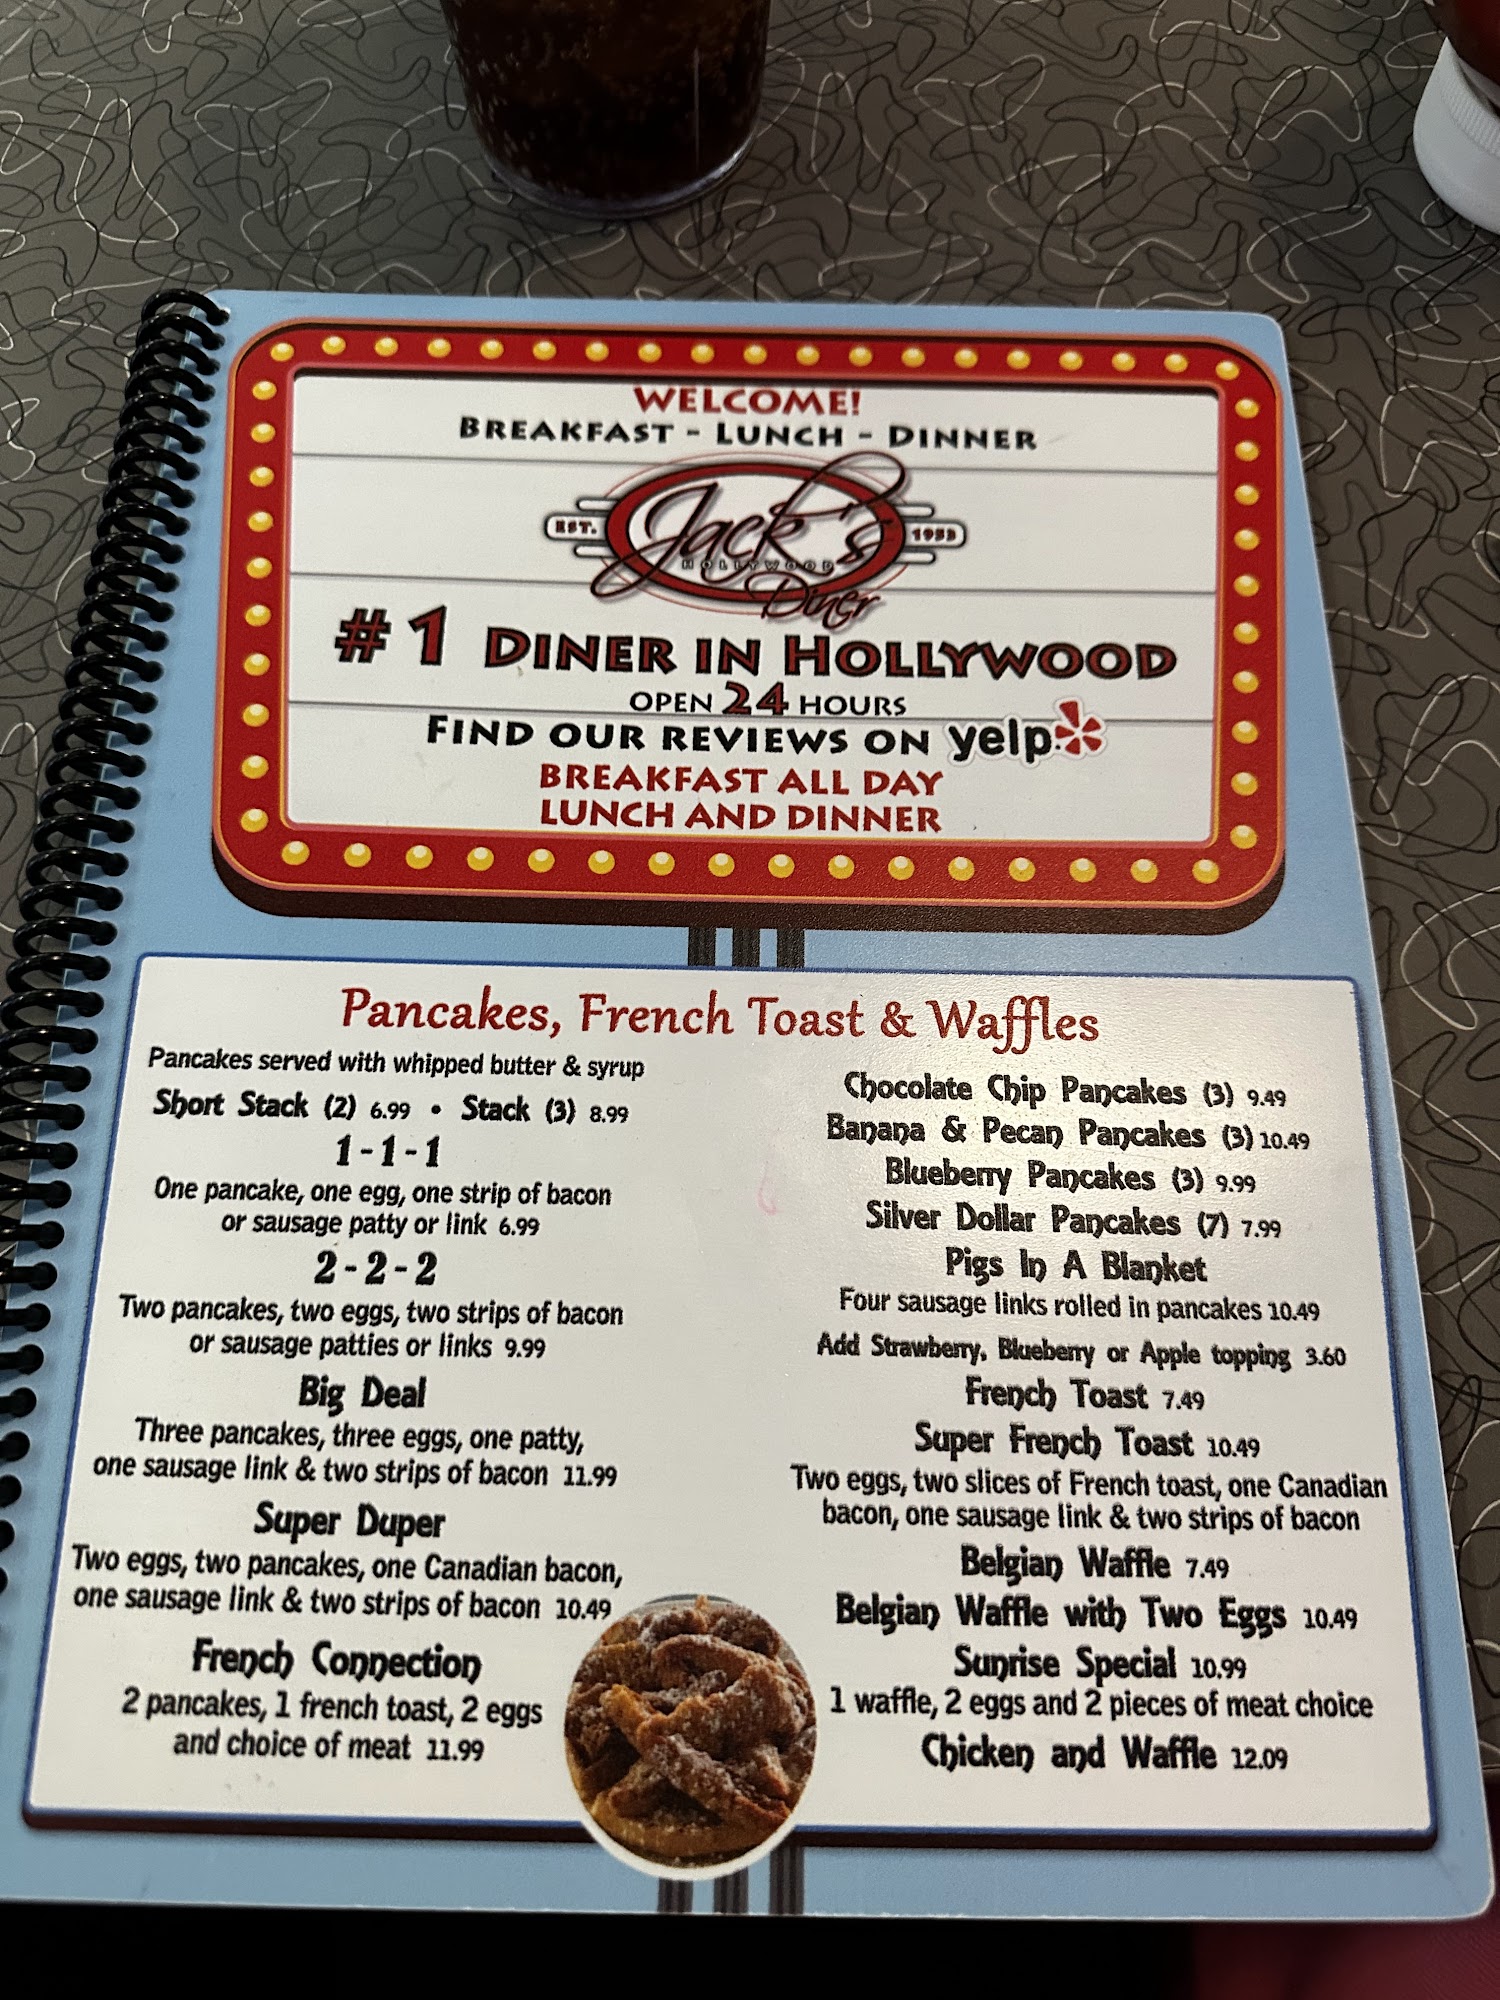 WELCOME!
BREAKFAST - LUNCH - DINNER
EST. Jack's 1953
HOLLYWOOD
Diner
#1 DINER IN HOLLYWOOD
OPEN 24 HOURS
FIND OUR REVIEWS ON yelp
BREAKFAST ALL DAY
LUNCH AND DINNER
Pancakes, French Toast & Waffles
Pancakes served with whipped butter & syrup
Short Stack (2) 6.99 • Stack (3) 8.99
1-1-1
One pancake, one egg, one strip of bacon
or sausage patty or link 6.99
2-2-2
Two pancakes, two eggs, two strips of bacon
or sausage patties or links 9.99
Big Deal
Three pancakes, three eggs, one patty,
one sausage link & two strips of bacon 11.99
Super Duper
Two eggs, two pancakes, one Canadian bacon,
one sausage link & two strips of bacon 10.49
French Connection
2 pancakes, 1 french toast, 2 eggs
and choice of meat 11.99
Chocolate Chip Pancakes (3) 9.49
Banana & Pecan Pancakes (3) 10.49
Blueberry Pancakes (3) 9.99
Silver Dollar Pancakes (7) 7.99
Pigs In A Blanket
Four sausage links rolled in pancakes 10.49
Add Strawberry, Blueberry or Apple topping 3.60
French Toast 7.49
Super French Toast 10.49
Two eggs, two slices of French toast, one Canadian
bacon, one sausage link & two strips of bacon
Belgian Waffle 7.49
Belgian Waffle with Two Eggs 10.49
Sunrise Special 10.99
1 waffle, 2 eggs and 2 pieces of meat choice
Chicken and Waffle 12.09